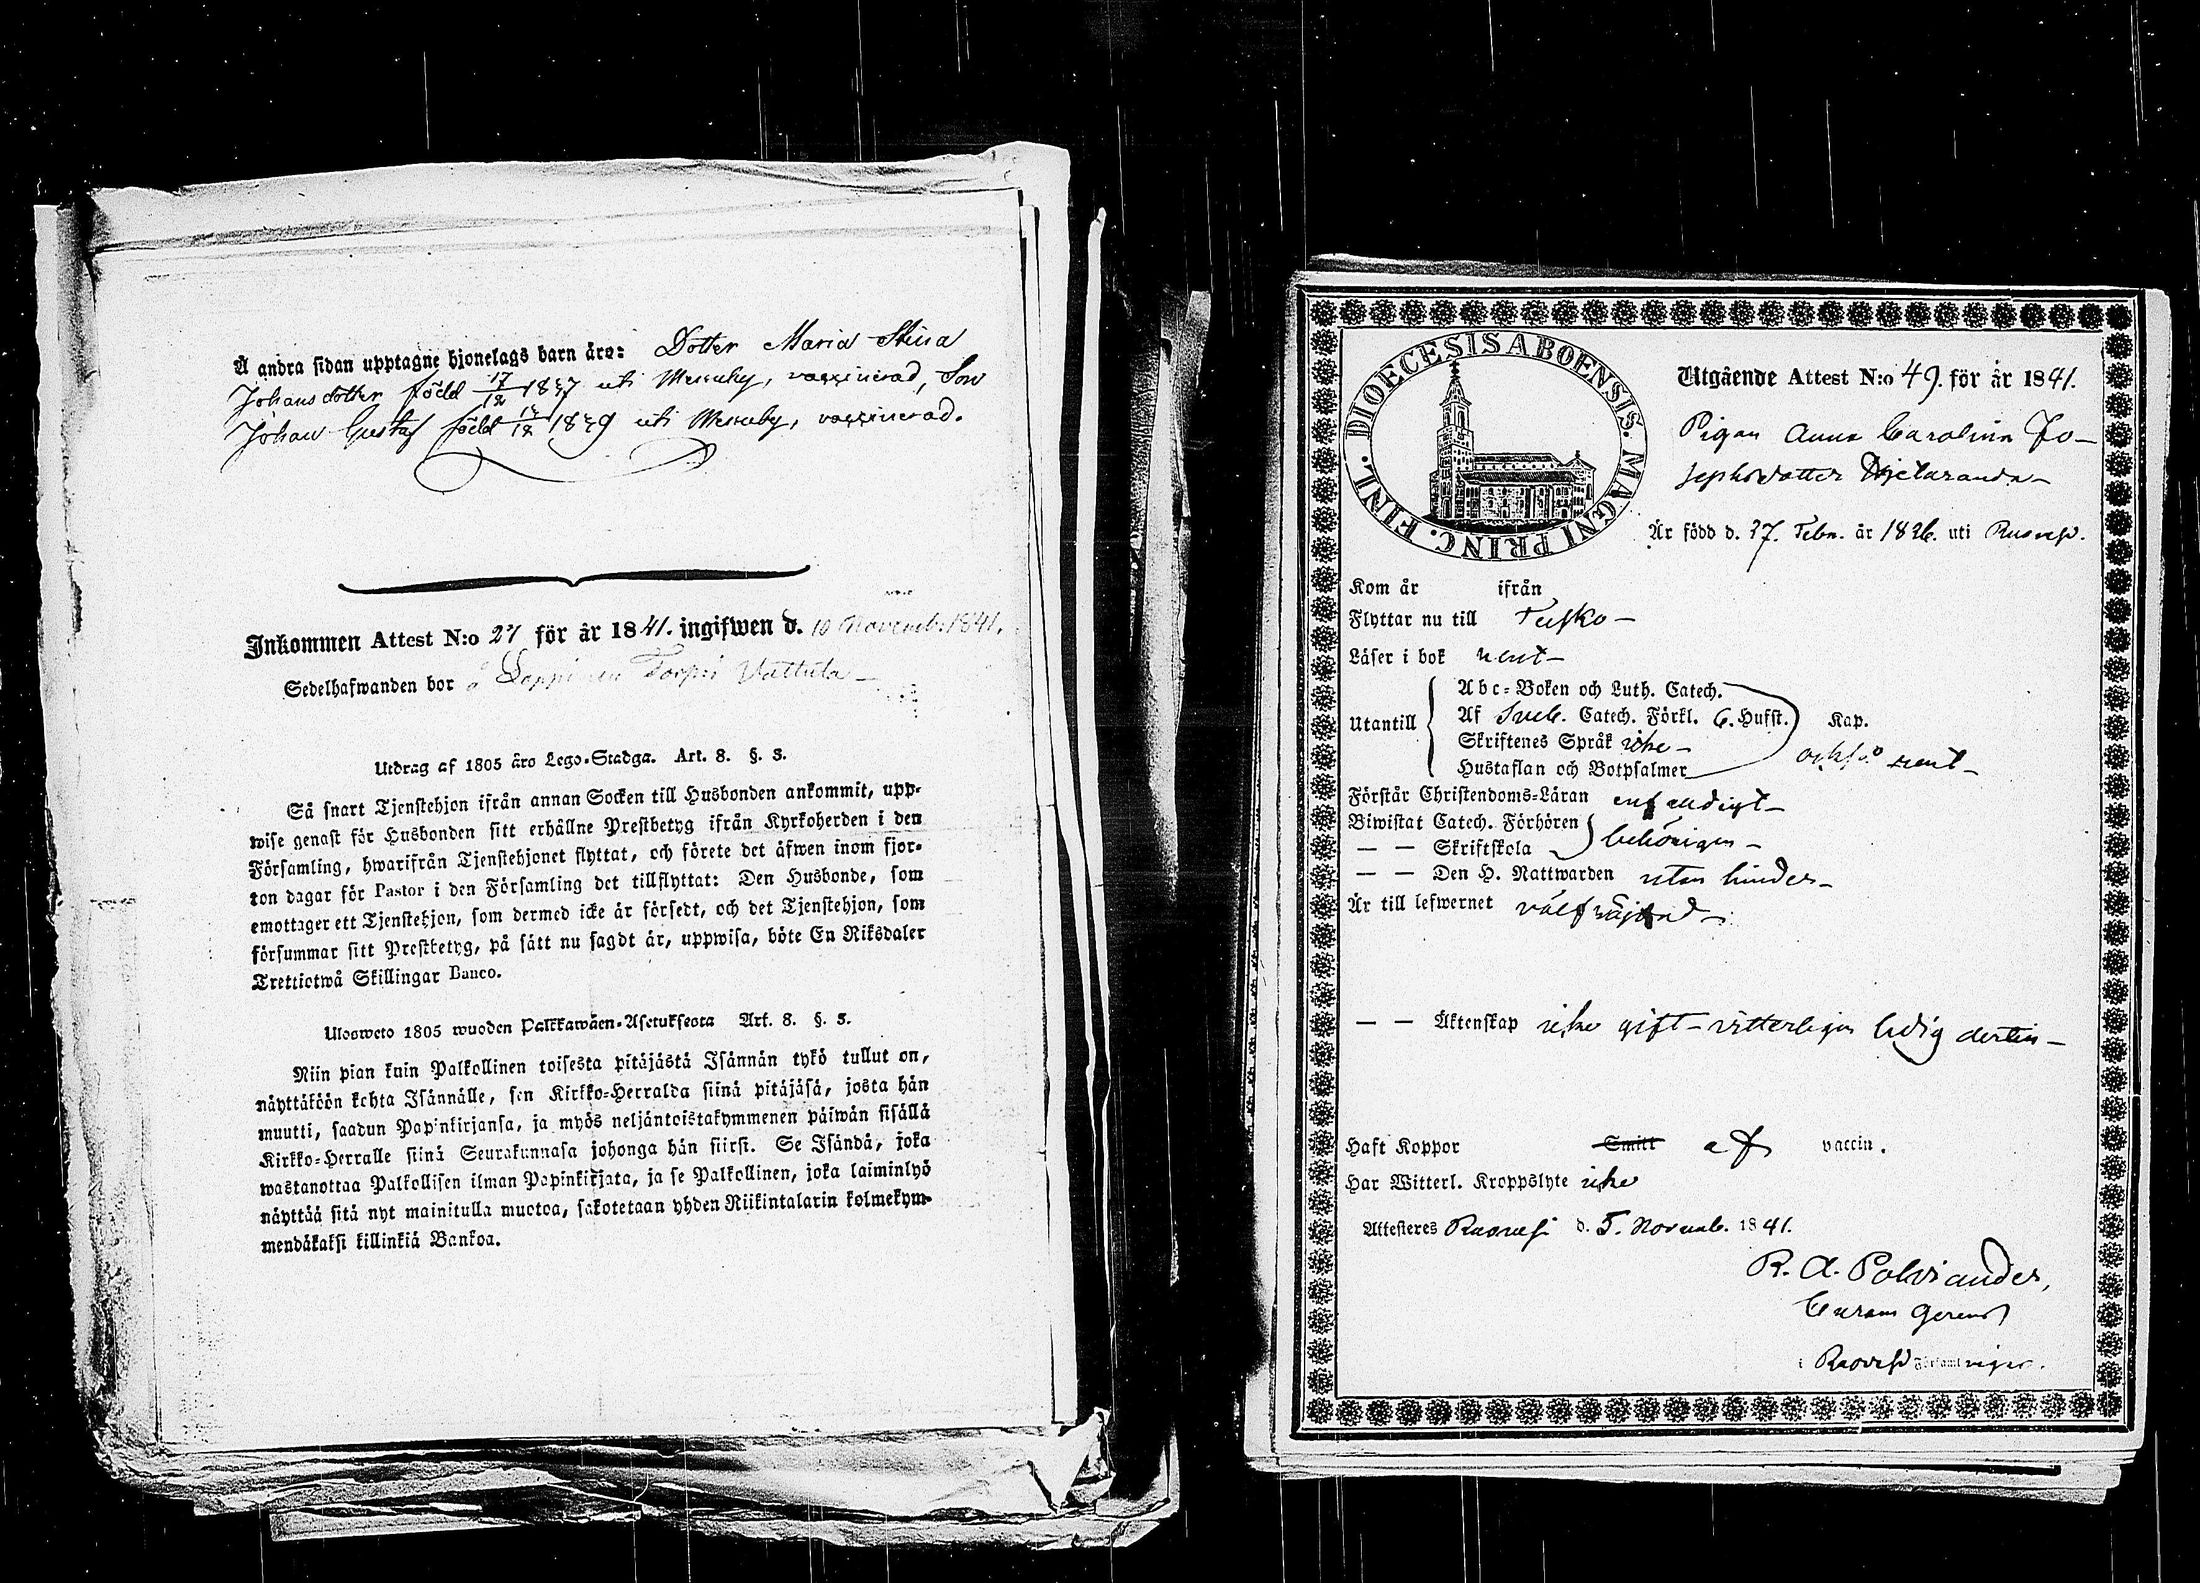 Å andra sidan upptagne hjonelags barn äro: Dotter Maria Stina
Johansdotter född 17/12 1837 uti Messuby, vaxxinerad, Son
Johan Gustaf född 1839 uti Messuby, vaxxinerad.
Inkommen Attest N:o 27 för år 1841. ingifwen d. 10 Novemb. 1841.
Sedelhafwanden bor å Torp Vattula
Utdrag af 1805 åro Lego-Stadga. Art. 8. §. 3.
Så snart Tjenstehjon ifrån annan Socken till Husbonden ankommit, upp-
wise genast för Husbonden sitt erhållne Prestbetyg ifrån Kyrkoherden i den
Församling, hwarifrån Tjenstehjonet flyttat, och förete det äfwen inom fjor-
ton dagar för Pastor i den Församling det tillflyttat: Den Husbonde, som
emottager ett Tjenstehjon, som dermed icke är försedt, och det Tjenstehjon, som
försummar sitt Prestbetyg, på sätt nu sagdt är, uppwisa, böte En Riksdaler
Trettiotwå Skillingar Banco.
Ulosweto 1805 wuoden Palkkawäen-Asetuksesta Art. 8. §. 3.
Niin pian kuin Palkollinen toisesta pitäjästä Isännän tykö tullut on,
näyttäköön kohta Isännälle, sen Kirkko-Herralda siinä pitäjäsä, josta hän
muutti, saadun Papinkirjansa, ja myös neljäntoistakymmenen päiwän sisällä
Kirkko-Herralle siinä Seurakunnasa johonga hän siirsi. Se Isändä, joka
wastanottaa Palkollisen ilman Papinkirjata, ja se Palkollinen, joka laiminlyö
näyttää sitä nyt mainitulla muotoa, sakotetaan yhden Riikintalarin kolmekym-
mendäkaksi killinkiä Bankoa.
DIOECESIS ABOENSIS. MAGNI PRINC. FINL.
Utgående Attest N:o 49. för år 1841.
Pigan Anna Carolina Jo-
sephsdotter Hjetaranda
Är född d. 27. Febr. år 1826. uti Rusvesi.
Kom år ifrån
Flyttar nu till Teisko
Läser i bok rent
Utantill
Abc-Boken och Luth. Catech.
Af Sveb. Catech. Förkl. 6. Hufst. Kap.
Skriftenes Språk icke
Hustaflan och Botpsalmer också rent
Förstår Christendoms-Läran enfaldigt
Biwistat Catech. Förhören
— — Skriftskola behörigen
— — Den H. Nattwarden utan hinder
Är till lefwernet välfräjdad
— — Äktenskap icke gift — vitterligen ledig dertill
Haft Koppor Smitt af vaccin.
Har Witterl. Kroppslyte icke
Attesteres Ruovesi d. 5. Novemb. 1841.
R. A. Polviander,
Curam Gerens
i Ruovesi Församlingen.